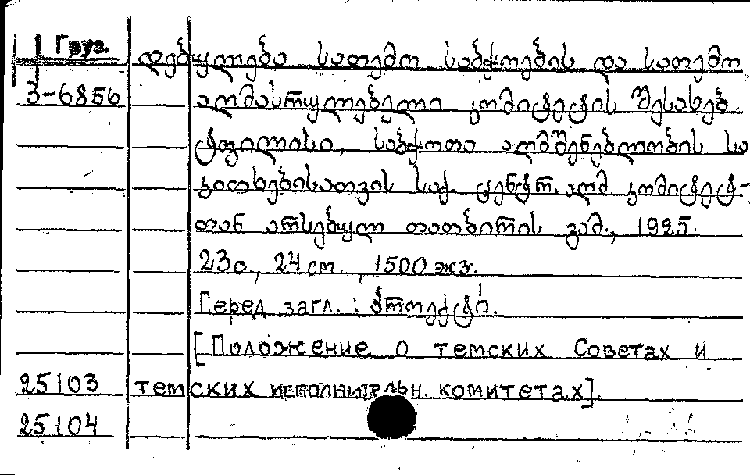 Груз.
დებულება სათემო საბჭოების და სათემო
3-6856 აღმასრულებელი კომიტეტის შესახებ.
ტფილისი, საბჭოთა აღმშენებლობის სა-
კითხებისათვის საქ. ცენტრ. აღმ. კომიტეტ-
თან არსებული თათბირის გამ., 1925.
23с., 24 cm., 1500 экз.
Перед загл.: პროექტი.
[Положение о темских Советах и
25103 темских исполнительн. комитетах].
25104